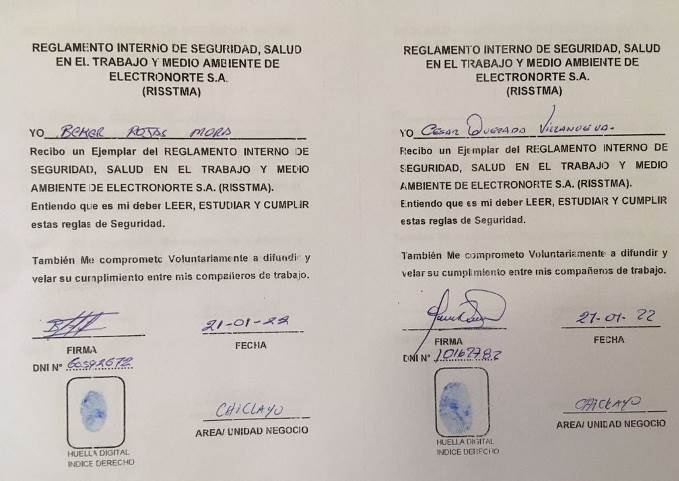 REGLAMENTO INTERNO DE SEGURIDAD, SALUD
EN EL TRABAJO Y MEDIO AMBIENTE DE
ELECTRONORTE S.A.
(RISSTMA)
YO BEMER ROJAS MORA
Recibo un Ejemplar del REGLAMENTO INTERNO DE
SEGURIDAD, SALUD EN EL TRABAJO Y MEDIO
AMBIENTE DE ELECTRONORTE S.A. (RISSTMA).
Entiendo que es mi deber LEER, ESTUDIAR Y CUMPLIR
estas reglas de Seguridad.
También Me comprometo Voluntariamente a difundir y
velar su cumplimiento entre mis compañeros de trabajo.
21-01-22
FIRMA
FECHA
DNI N°
CHICLAYO
AREA/ UNIDAD NEGOCIO
HUELLA DIGITAL
INDICE DERECHO
REGLAMENTO INTERNO DE SEGURIDAD, SALUD
EN EL TRABAJO Y MEDIO AMBIENTE DE
ELECTRONORTE S.A.
(RISSTMA)
YO CESAR QUEZADA VILLANUEVA.
Recibo un Ejemplar del REGLAMENTO INTERNO DE
SEGURIDAD, SALUD EN EL TRABAJO Y MEDIO
AMBIENTE DE ELECTRONORTE S.A. (RISSTMA).
Entiendo que es mi deber LEER, ESTUDIAR Y CUMPLIR
estas reglas de Seguridad.
También Me comprometo Voluntariamente a difundir y
velar su cumplimiento entre mis compañeros de trabajo.
21-01-22
FIRMA
FECHA
DNI N°
CHICLAYO
AREA/ UNIDAD NEGOCIO
HUELLA DIGITAL
INDICE DERECHO